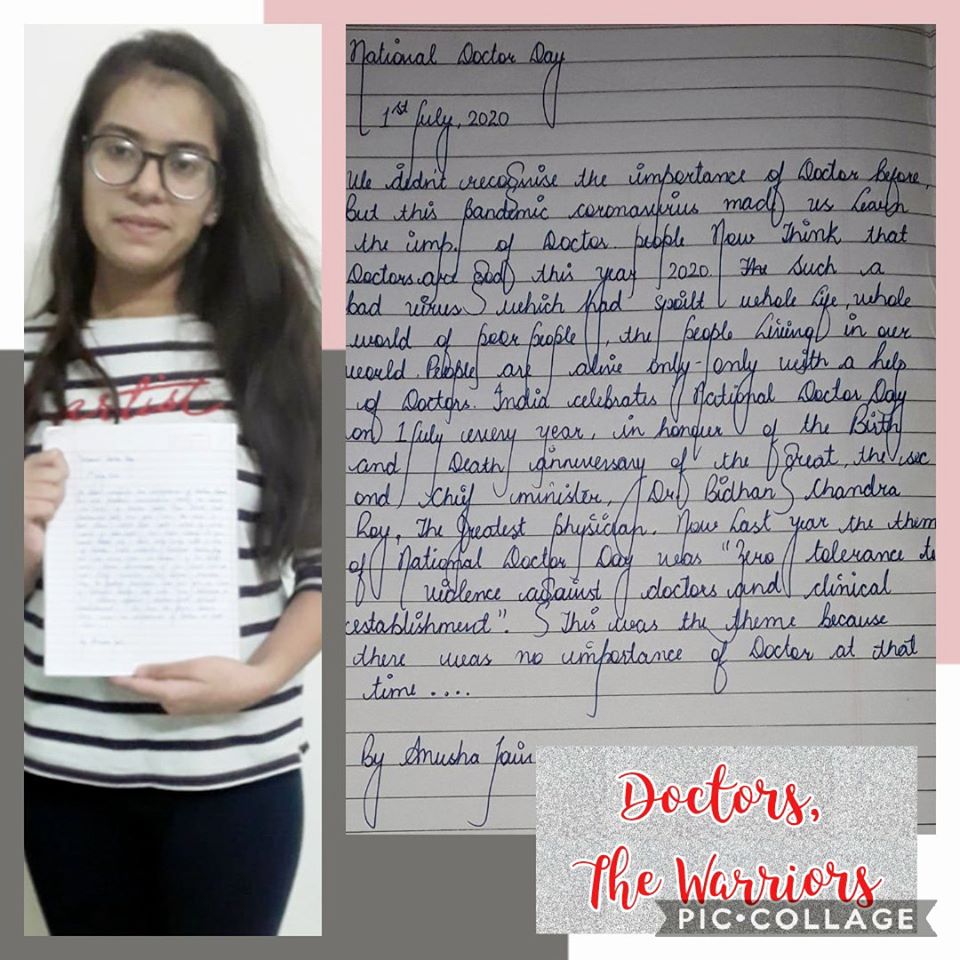 National Doctor Day
1st July, 2020
We didn't recognise the importance of Doctor before,
but this pandemic coronavirius made us learn
the imp. of Doctor. people Now Think that
Doctors are God this year 2020. The Such a
bad virus which had spoilt whole life, whole
world of poor people, the people living in our
world. Peoples are alive only-only with a help
of Doctors. India celebrates National Doctor Day
on 1 July every year, in honour of the Birth
and Death anniversary of the Great, the sec
ond Chif minister, Dr. Bidhan Chandra
Roy, The Greatest physician. Now last year the them
of National Doctor Day was "Zero tolerance to
violence against doctors and clinical
establishment". This was the theme because
there was no importance of Doctor at that
time ....
By Anusha Jain
artist
Doctors,
The Warriors
PIC•COLLAGE